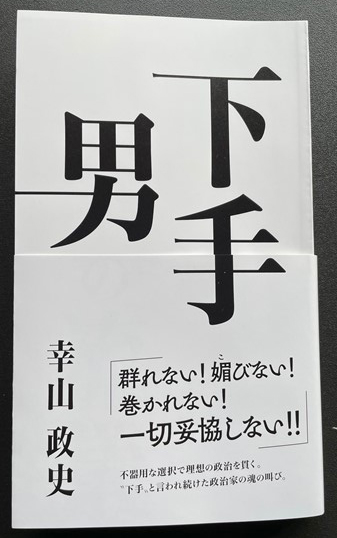 下手
男
幸山 政史
「群れない！媚びない！
巻かれない！
一切妥協しない!!」
不器用な選択で理想の政治を貫く。
〝下手〟と言われ続けた政治家の魂の叫び。